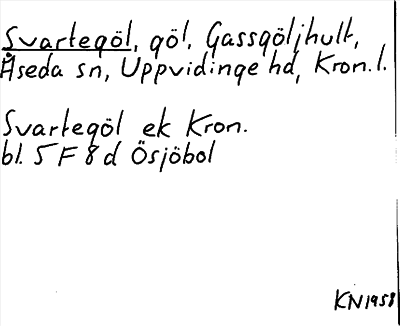 Svartegöl, göl, Gassgöljhult,
Åseda sn, Uppvidinge hd, Kron. l.
Svartegöl ek Kron.
bl. 5 F 8 d Ösjöbol
KN 1958